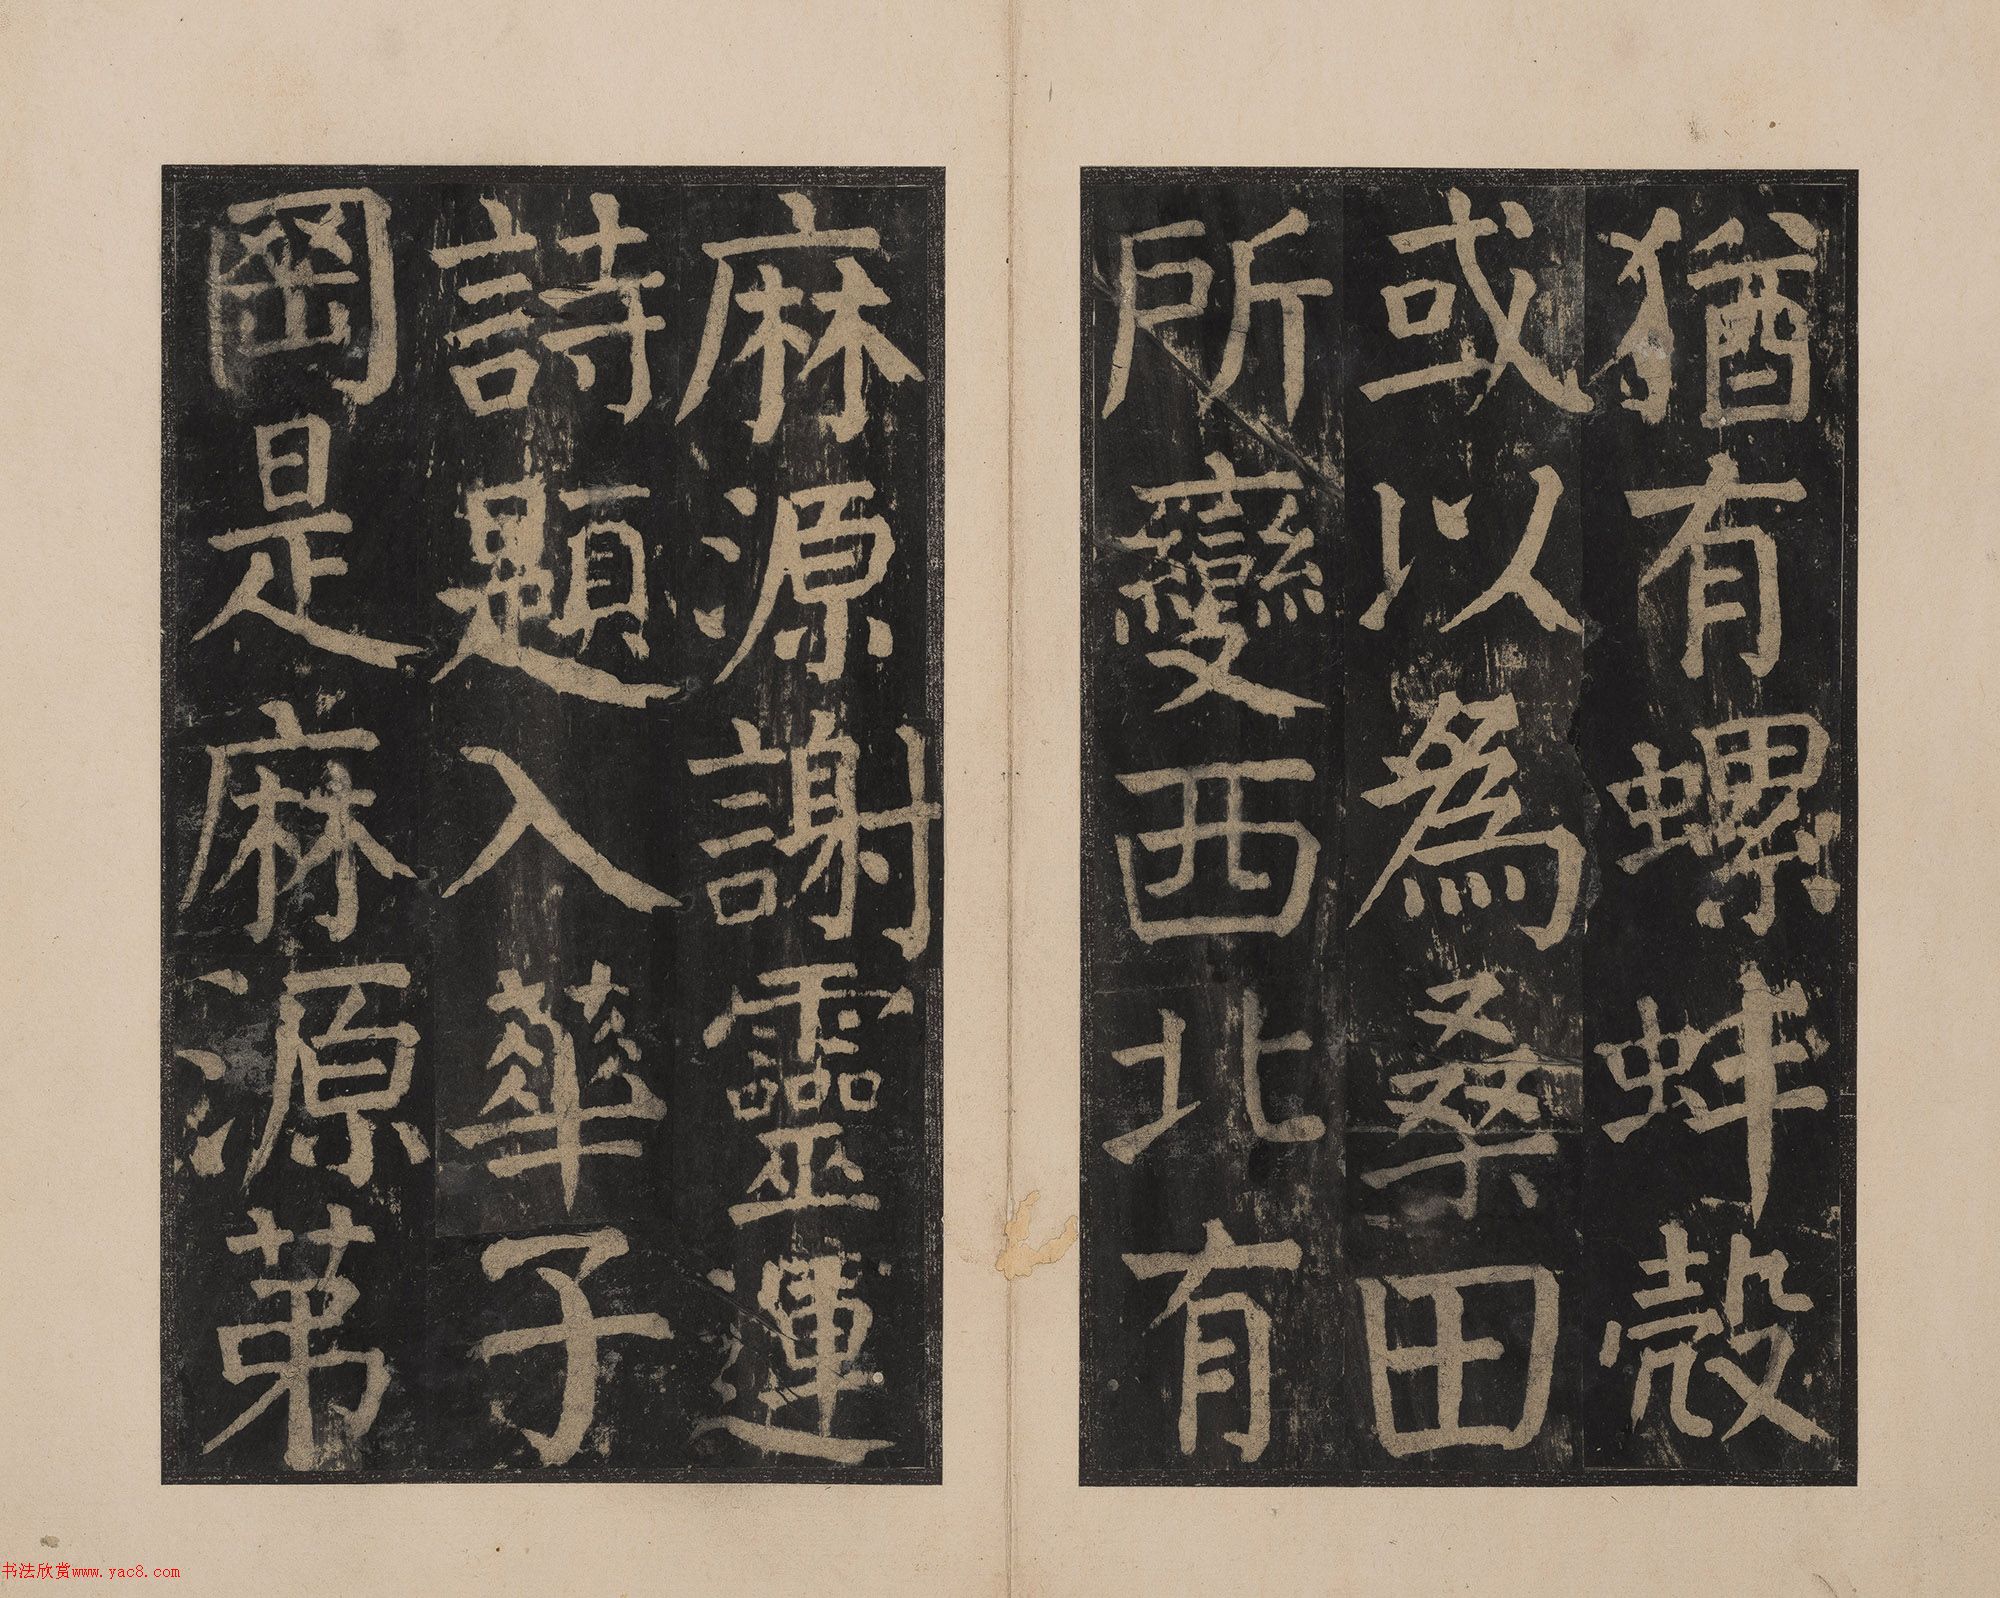 猶有螺蚌殼
或以為桑田
所變西北有
麻源謝靈運
詩題入華子
岡是麻源第
书法欣赏www.yac8.com